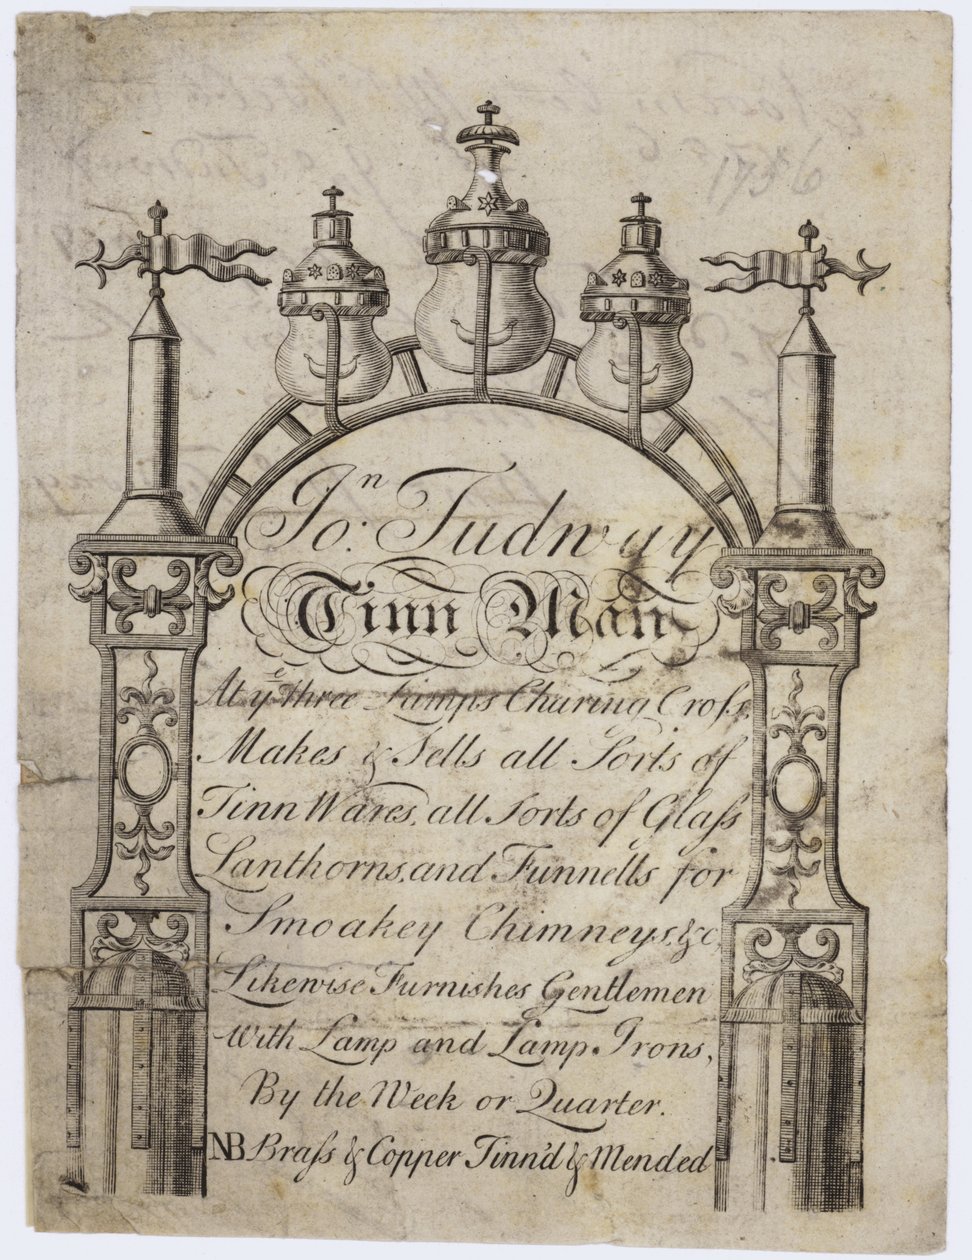 Jo:ⁿ Tudway
Tinn Man
At yᵉ three Lamps Charing Croſs,
Makes & Sells all Sorts of
Tinn Wares, all Sorts of Glaſs
Lanthorns, and Funnells for
Smoakey Chimneys, &c,
Likewise Furnishes Gentlemen
With Lamp and Lamp. Irons,
By the Week or Quarter.
NB Braſs & Copper Tinn'd & Mended